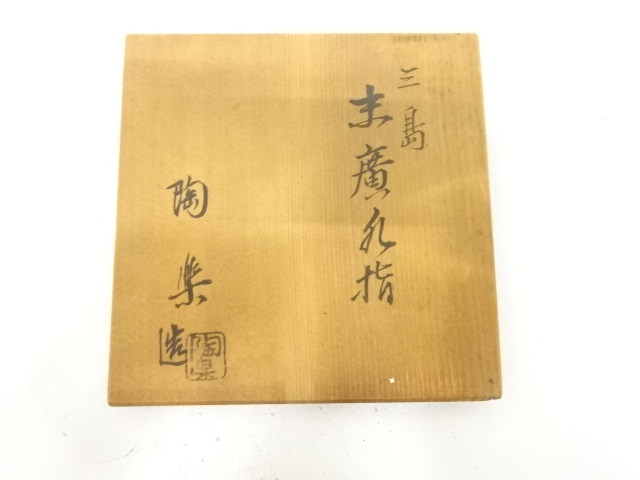 三島
末廣水指
陶楽造
陶楽